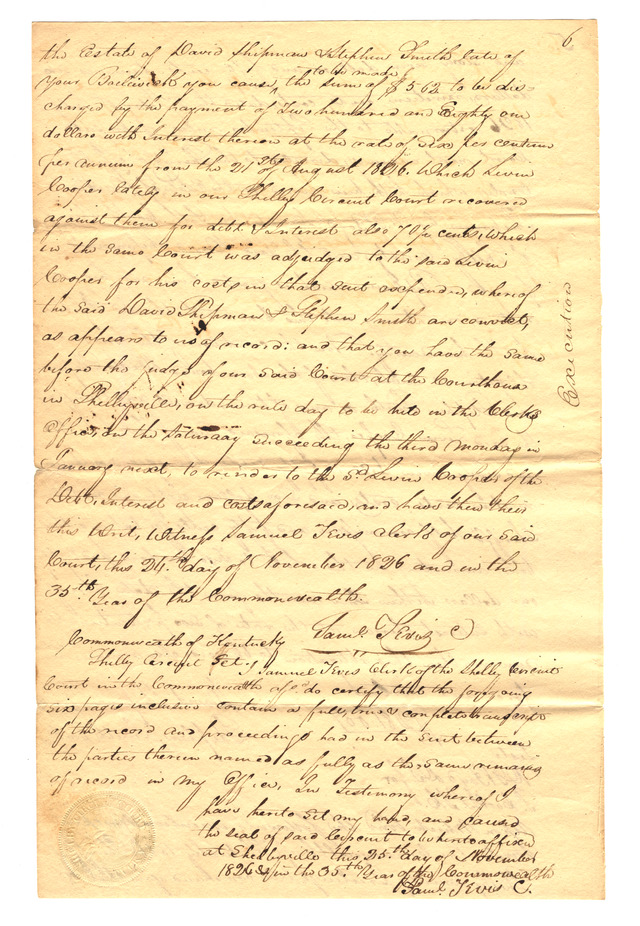 6
the Estate of David Shipman & Stephen Smith late of
your Bailiwick you cause, to be made the sum of $562 to be dis-
charged by the payment of Two hundred and Eighty one
dollars with Interest thereon at the rate of Six per centum
per annum from the 21st of August 1806. Which Levin
Cooper lately in our Shelby Circuit Court recovered
against them for debt & Interest also 70 cents, which
in the same Court was adjudged to the said Levin
Cooper for his costs in that suit expended, whereof
the said David Shipman & Stephen Smith are convict,
as appears to us of record: and that you have the same
before the Judge of our said Court at the Courthouse
in Shelbyville, on the rule day to be held in the Clerks
Office, on the Saturday succeeding the third Monday in
January next, to render to the sd. Levin Cooper of the
Debt, Interest and costs aforesaid, and have then their
this Writ, Witness Samuel Tevis Clerk of our said
Court, this 24th day of November 1826 and in the
35th Year of the Commonwealth.
Saml. Tevis C
Execution
Commonwealth of Kentucky
Shelby Circuit Set. I Samuel Tevis Clerk of the Shelby Circuit
Court in the Commonwealth afsd do certify that the foregoing
Six pages inclusive contain a full, true & complete transcript
of the record and proceedings had in the suit between
the parties therein named as fully as the same remains
of record in my Office, In Testimony whereof I
have hereto set my hand, and caused
the seal of said Circuit to be hereto affixed
at Shelbyville this 25th day of November
1826 & in the 35th Year of the Commonwealth
Saml. Tevis C.